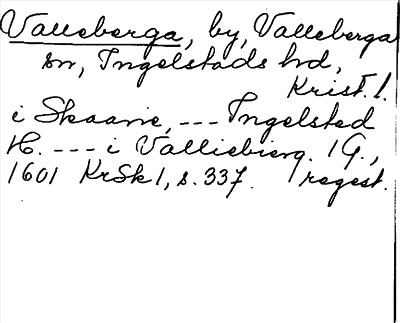 Valleberga, by, Valleberga
sn, Ingelstads hd,
Krist. l.
i Skaane, --- Ingelsted
H. --- i Valliebierg. 1 G.,
1601 KrSk 1, s. 337. regest.